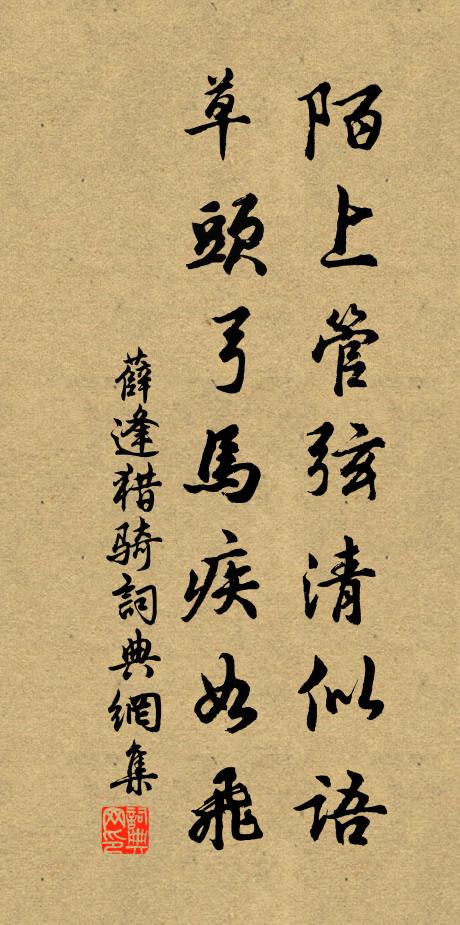 陌上管弦清似语
草頭弓馬疾如飛
薛逢猎骑詞典網集
詞典网印